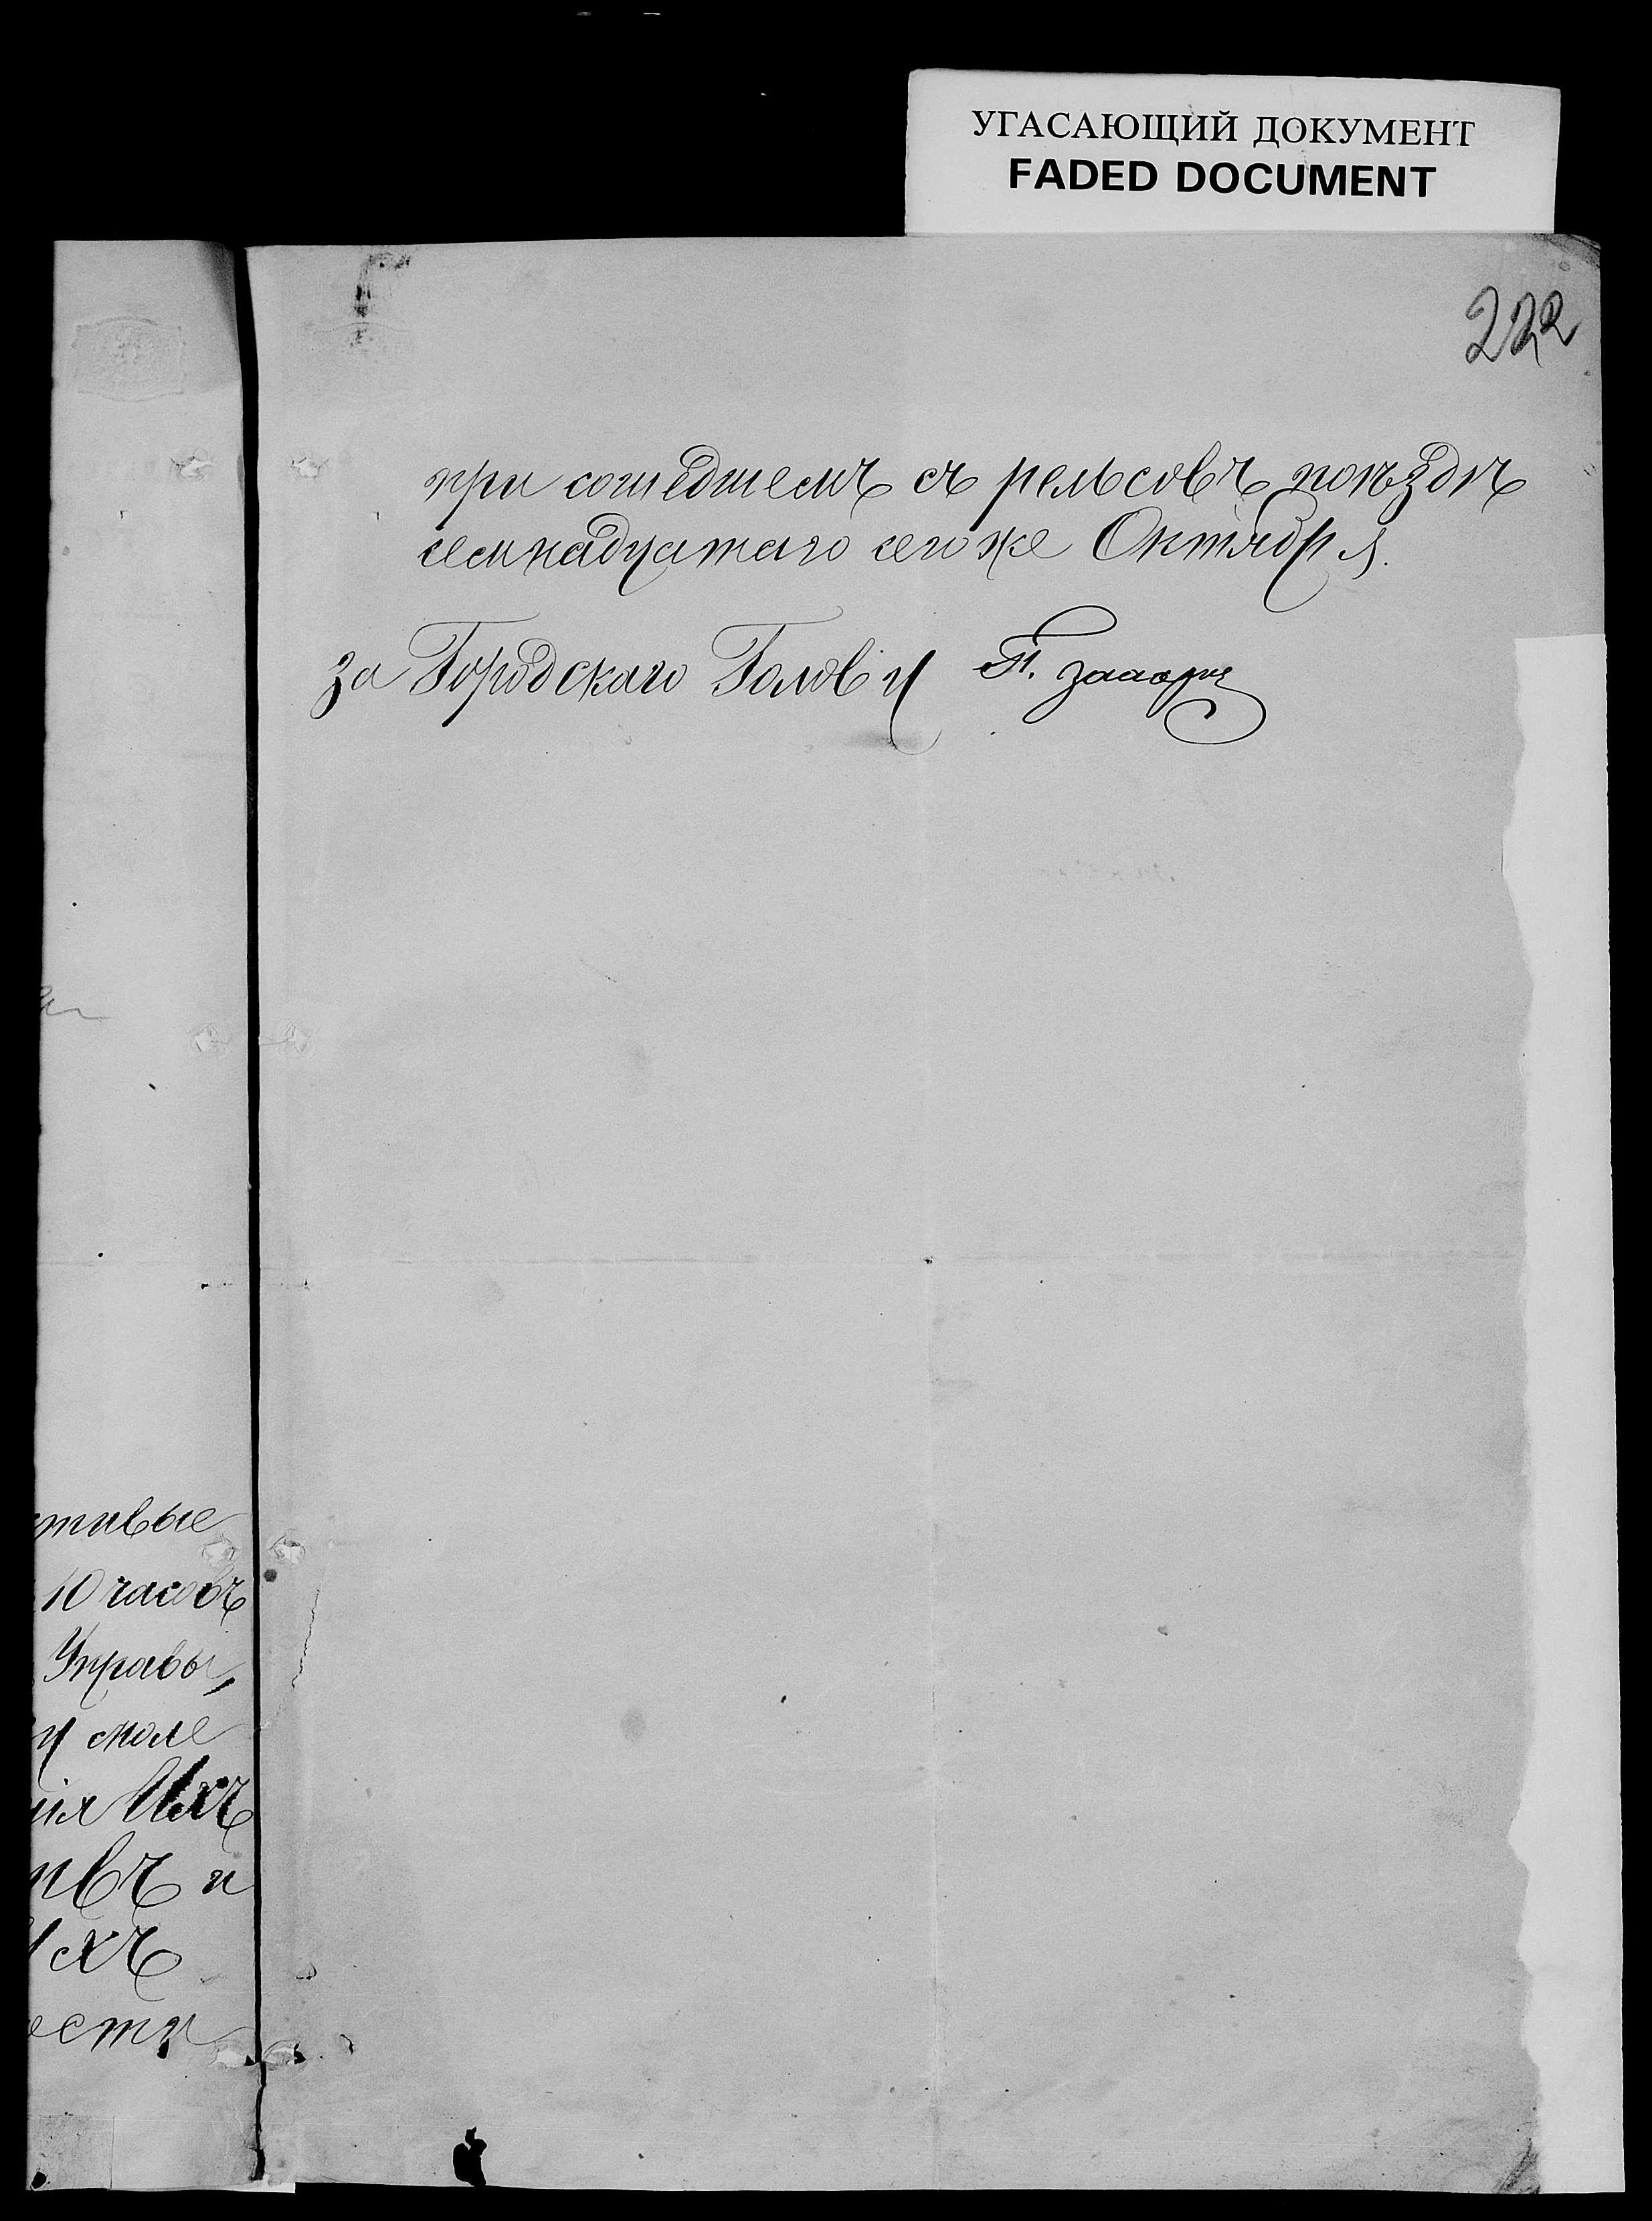 УГАСАЮЩИЙ ДОКУМЕНТ
FADED DOCUMENT
222
при сошедшемъ съ рельсовъ поѣздѣ
семнадцатаго сего же Октября.
за Городскаго Голову П.
тивые
10 часовъ
Управы,
моле
ія Ихъ
въ и
хъ
ести